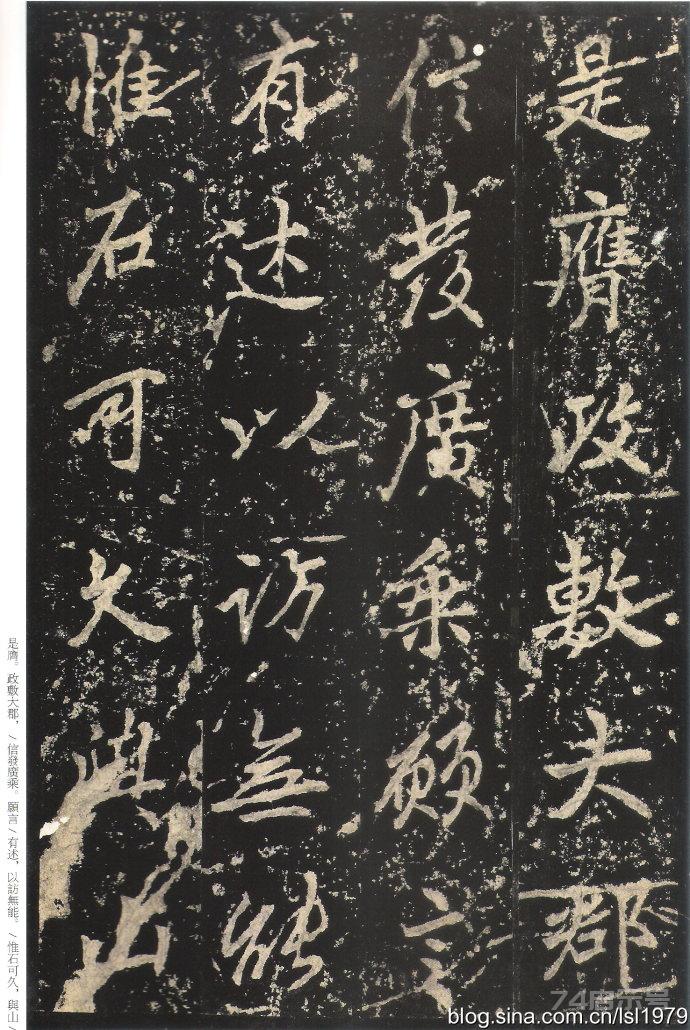 是膺政敷大郡
信發廣乘願言
有述以訪無能
惟石可久與山
是膺。政敷大郡，/信發廣乘。願言/有述，以訪無能。/惟石可久，與山/
blog.sina.com.cn/lsl1979